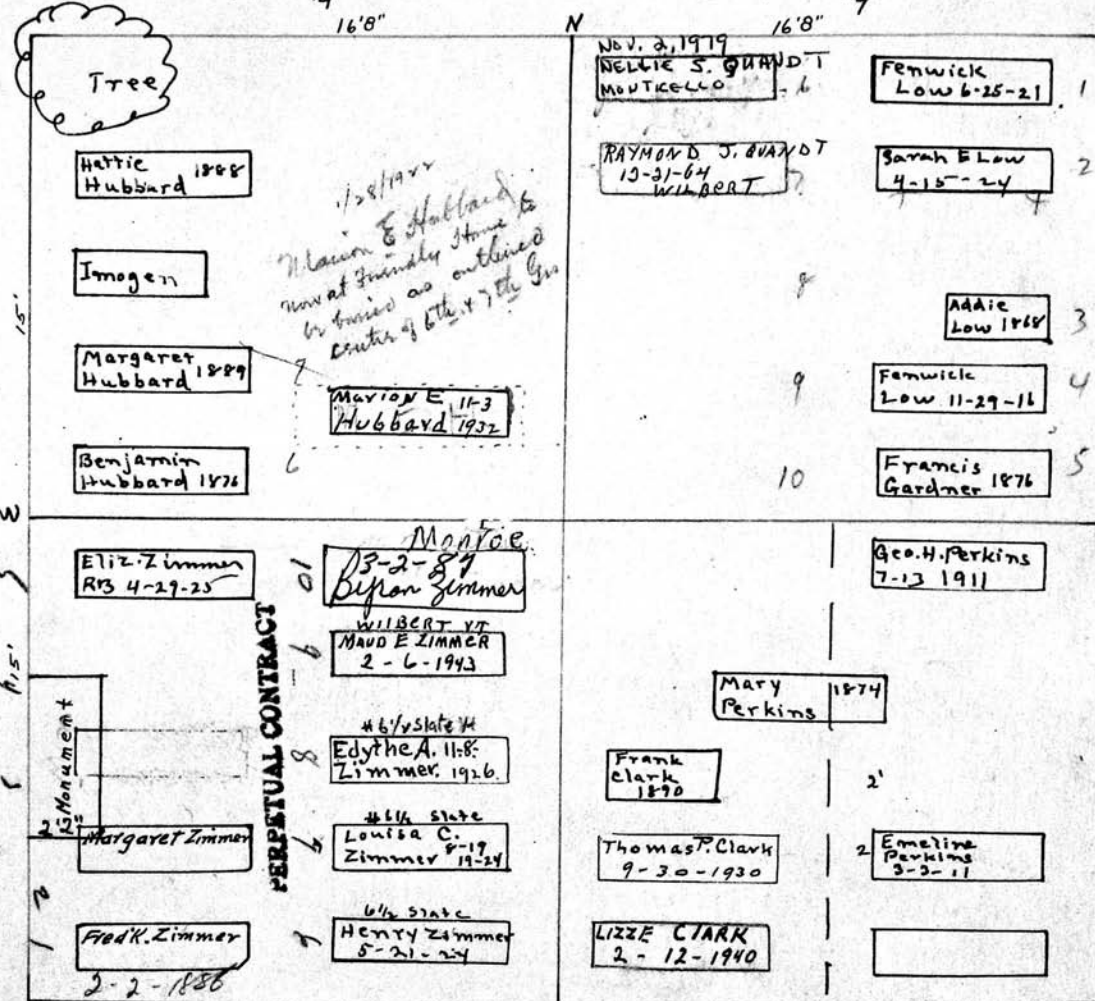 16'8"
N
16'8"
7
Tree
Hattie 1888
Hubbard
Imogen
Margaret 1889
Hubbard
Benjamin
Hubbard 1876
15'
1/28/1922
Marion E Hubbard
now at Friendly Home to
be buried as outlined
center of 6th & 7th Grs
7
6
Marion E 11-3
Hubbard 1932
Nov. 2, 1979
NELLIE S. QUANDT
MONTICELLO
6
RAYMOND J. QUANDT
12-21-64
WILBERT
7
8
9
10
Fenwick
Low 6-25-21
1
Sarah E Low
4-15-24
2
Addie
Low 1868
3
Fenwick
Low 11-29-16
4
Francis
Gardner 1876
5
Eliz. Zimmer
4-29-25
Monument
2'2"
Margaret Zimmer
2
Fred'K. Zimmer
2-2-1886
1
PERPETUAL CONTRACT
Monroe
10
3-2-87
Byron Zimmer
WILBERT VT
9
MAUD E ZIMMER
2-6-1943
8
Edythe A. 11-8-
Zimmer. 1926.
#6 1/2 slate
7
Louisa C.
8-19
Zimmer 19-24
6 1/2 slate
6
Henry Zimmer
5-21-24
Geo. H. Perkins
7-13 1911
Mary 1874
Perkins
Frank
Clark
1890
2'
Thomas P. Clark
9-30-1930
2
Emeline
Perkins
3-3-11
LIZZE CLARK
2-12-1940